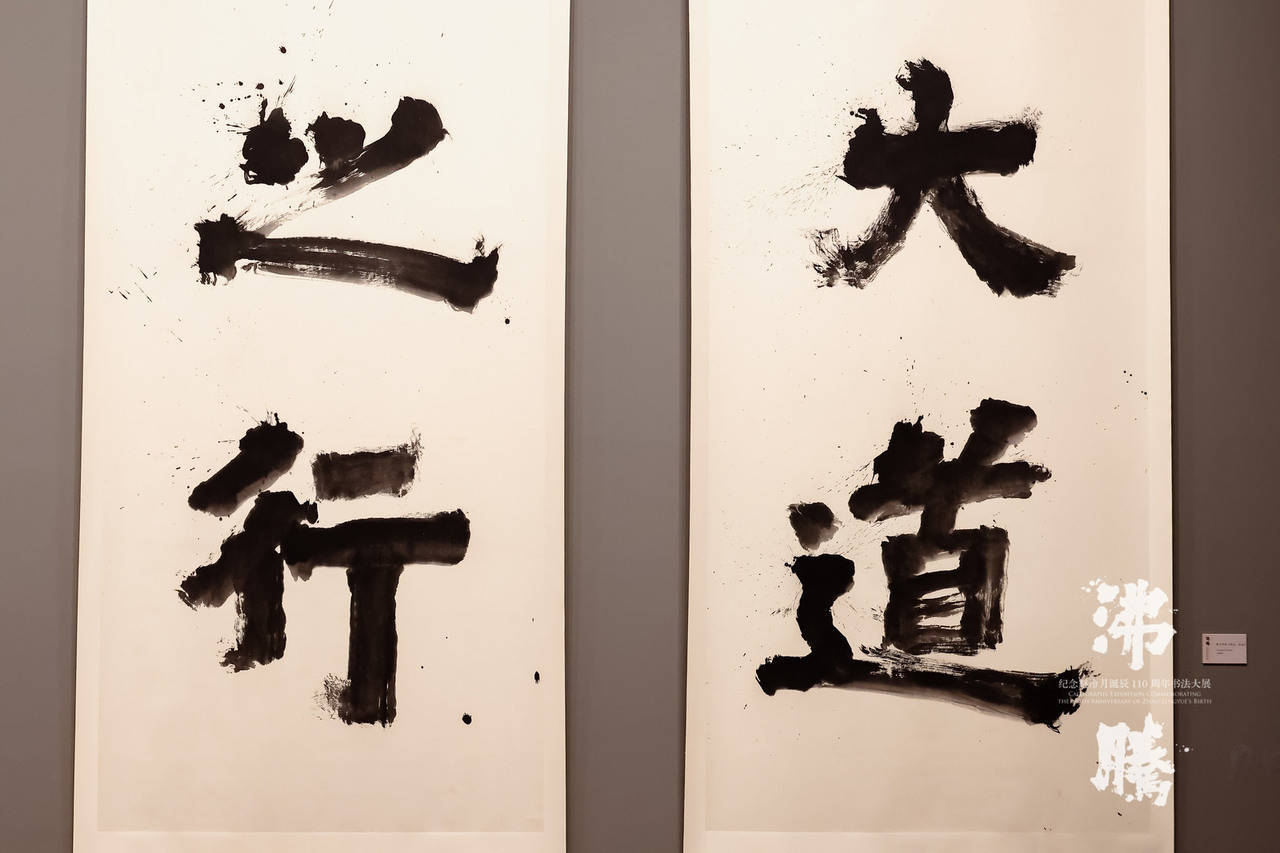 大道
之行
沸
纪念赵冷月诞辰 110 周年书法大展
CALLIGRAPHY EXPOSITION COMMEMORATING
THE 110TH ANNIVERSARY OF ZHAO LENGYUE'S BIRTH
腾